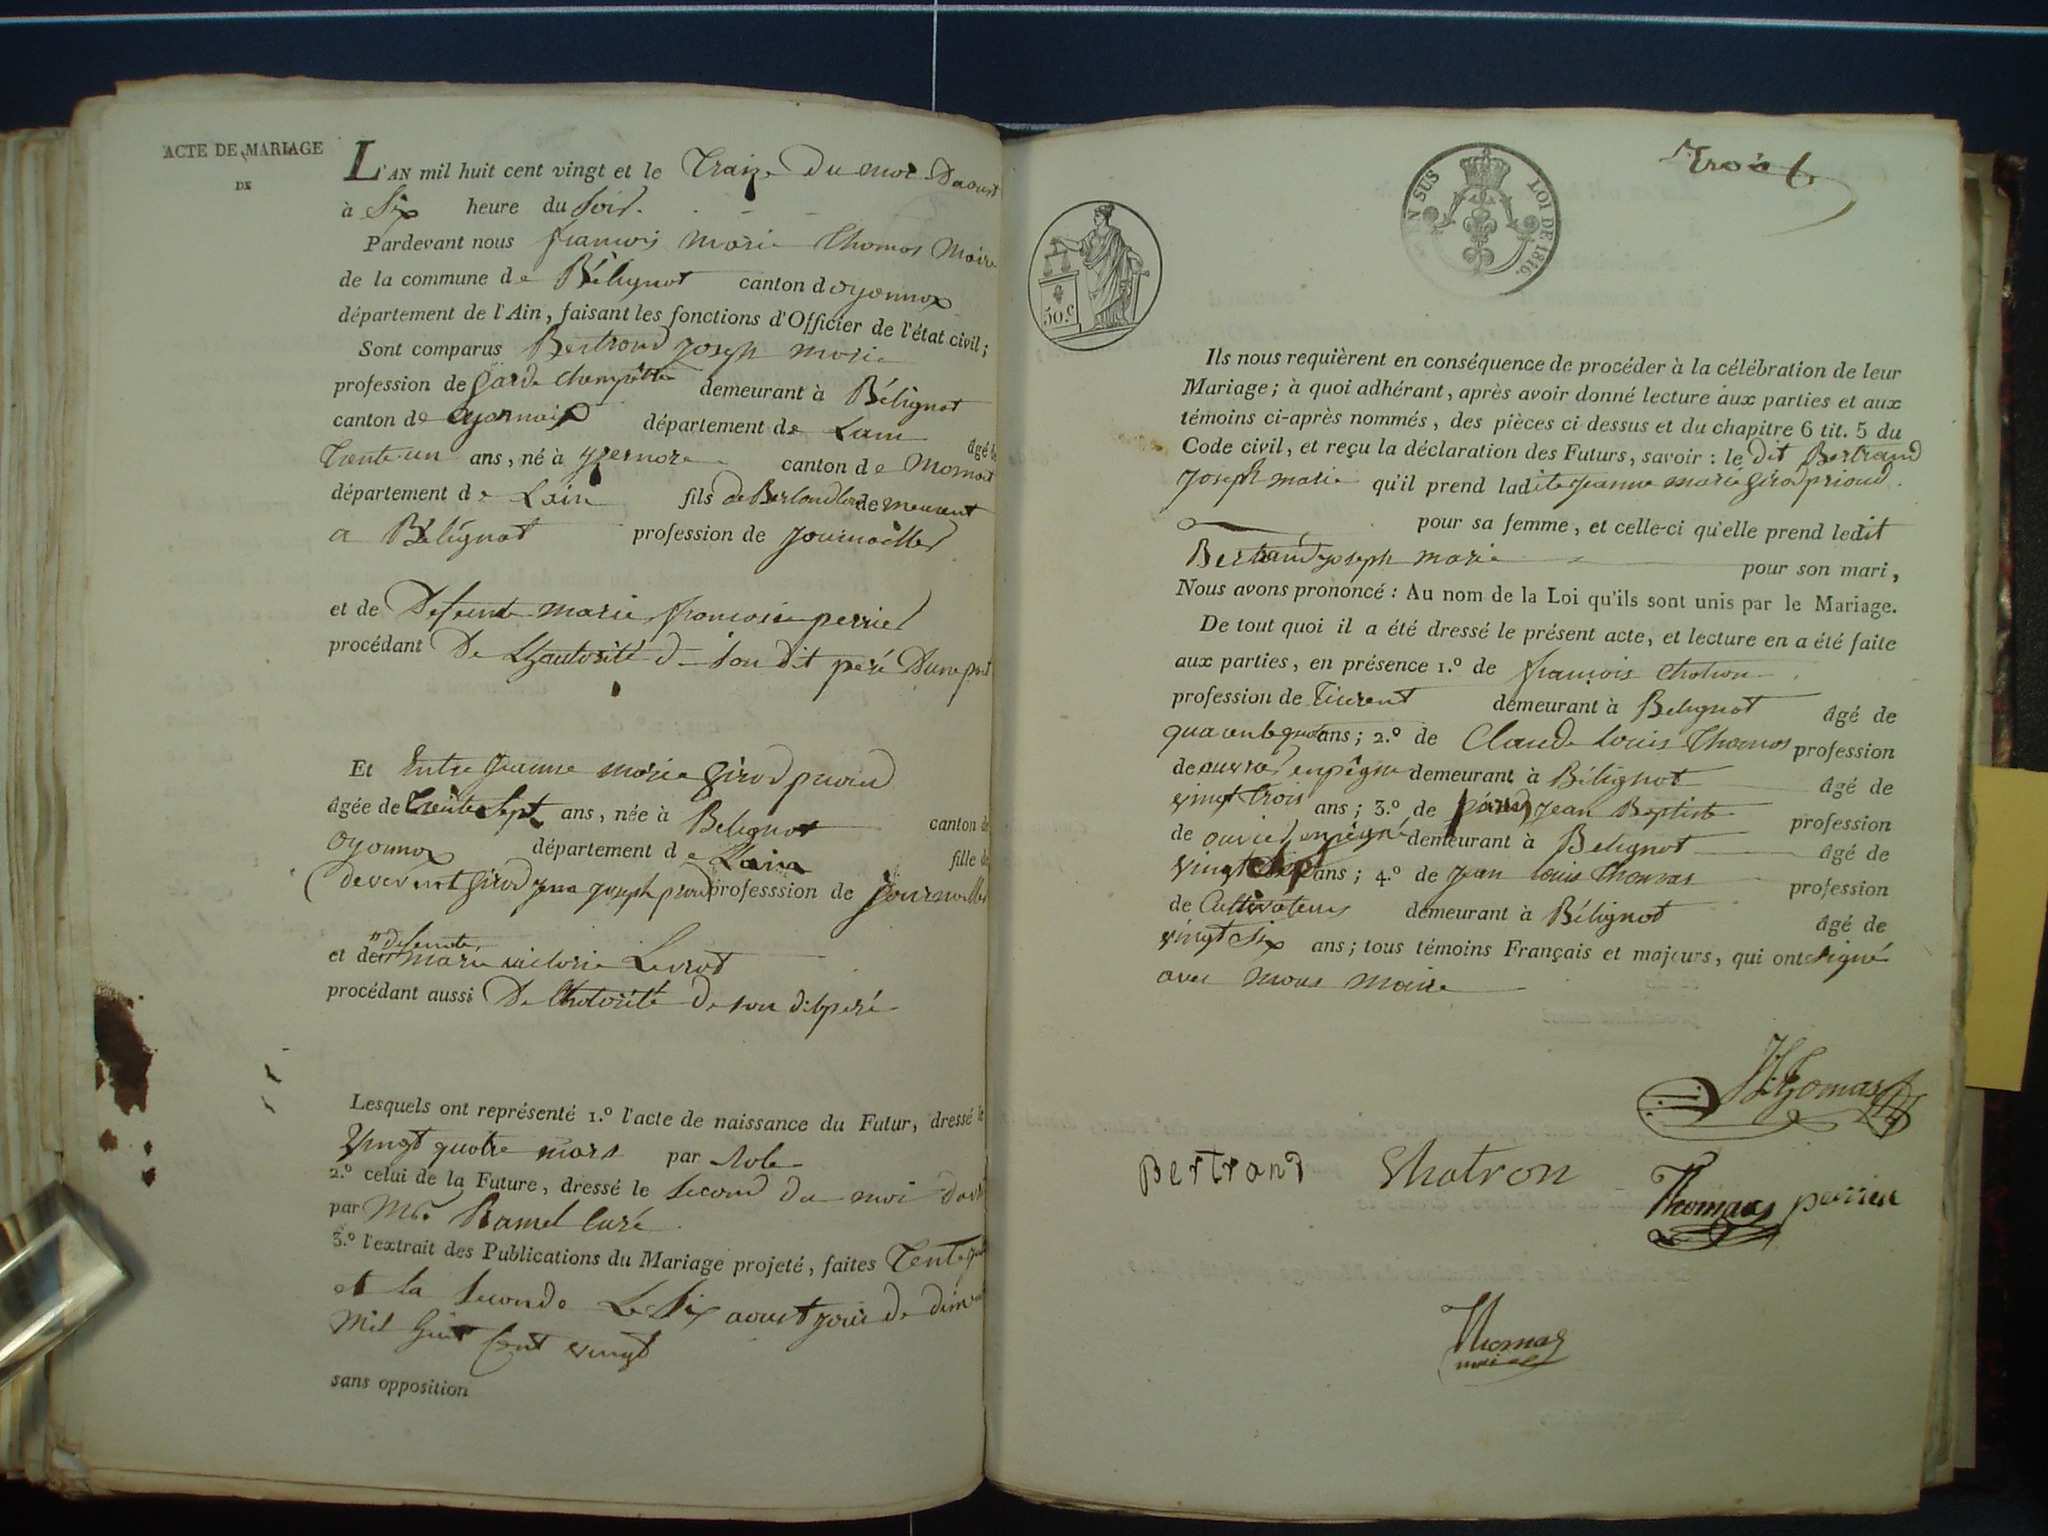 ACTE DE MARIAGE
DE
L'AN mil huit cent vingt et le Traize Du moi Daoust
à Six heure du Soir.
Pardevant nous françois marie Thomas Maire
de la commune de Bélignat canton d oyonnax
département de l'Ain, faisant les fonctions d'Officier de l'état civil;
Sont comparus Bertrand joseph marie
profession de Garde Champêtre demeurant à Bélignat
canton de oyonnax département de Lain âgé de
Trente un ans, né à yzernore canton de
département de Lain fils de demeurant
a Bélignat profession de journallier
et de Defeunte marie françoise perrier
procédant De Lhautorité de son dit peré Dune part
Et Entre jeanne marie Girod prioud
âgée de trente Sept ans, née à Belignat canton de
oyonnax département de Lain fille de
Girod joseph professsion de journallier
et de defeunte marie victorie Levrat
procédant aussi De Lhotorité de son dit peré
Lesquels ont représenté 1.º l'acte de naissance du Futur, dressé le
Vingt quatre mars par
2.º celui de la Future, dressé le Second du moi davril
par Mr. Ramel Curé
3.º l'extrait des Publications du Mariage projeté, faites
et la Seconde Le Six aoust jour de
Mil huit Cent vingt
sans opposition
SUS LOI DE 1816.
50.c
Ils nous requièrent en conséquence de procéder à la célébration de leur
Mariage; à quoi adhérant, après avoir donné lecture aux parties et aux
témoins ci-après nommés, des pièces ci dessus et du chapitre 6 tit. 5 du
Code civil, et reçu la déclaration des Futurs, savoir: le dit Bertrand
Joseph marie qu'il prend ladite jeanne marie girod prioud.
pour sa femme, et celle-ci qu'elle prend ledit
Bertrand joseph marie pour son mari,
Nous avons prononcé: Au nom de la Loi qu'ils sont unis par le Mariage.
De tout quoi il a été dressé le présent acte, et lecture en a été faite
aux parties, en présence 1.º de françois Chatron
profession de demeurant à Belignat âgé de
ans; 2.º de Claude Louis Thomas profession
de demeurant à Bélignat âgé de
vingt trois ans; 3.º de jean Baptiste profession
de demeurant à Belignat âgé de
vingt ans; 4.º de jean Louis Thomas profession
de Cultivateur demeurant à Bélignat âgé de
vingt Six ans; tous témoins Français et majeurs, qui ont signé
avec nous maire
Thomas
Bertrand Chatron Thomas perrier
Thomas
maire